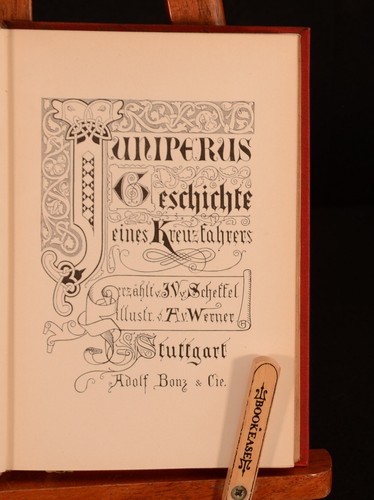 JUNIPERUS
Geschichte
eines Kreuzfahrers
erzählt v. J.V. v. Scheffel
Illustr. v. A. v. Werner
Stuttgart
Adolf Bonz & Cie.
BOOK EASEL